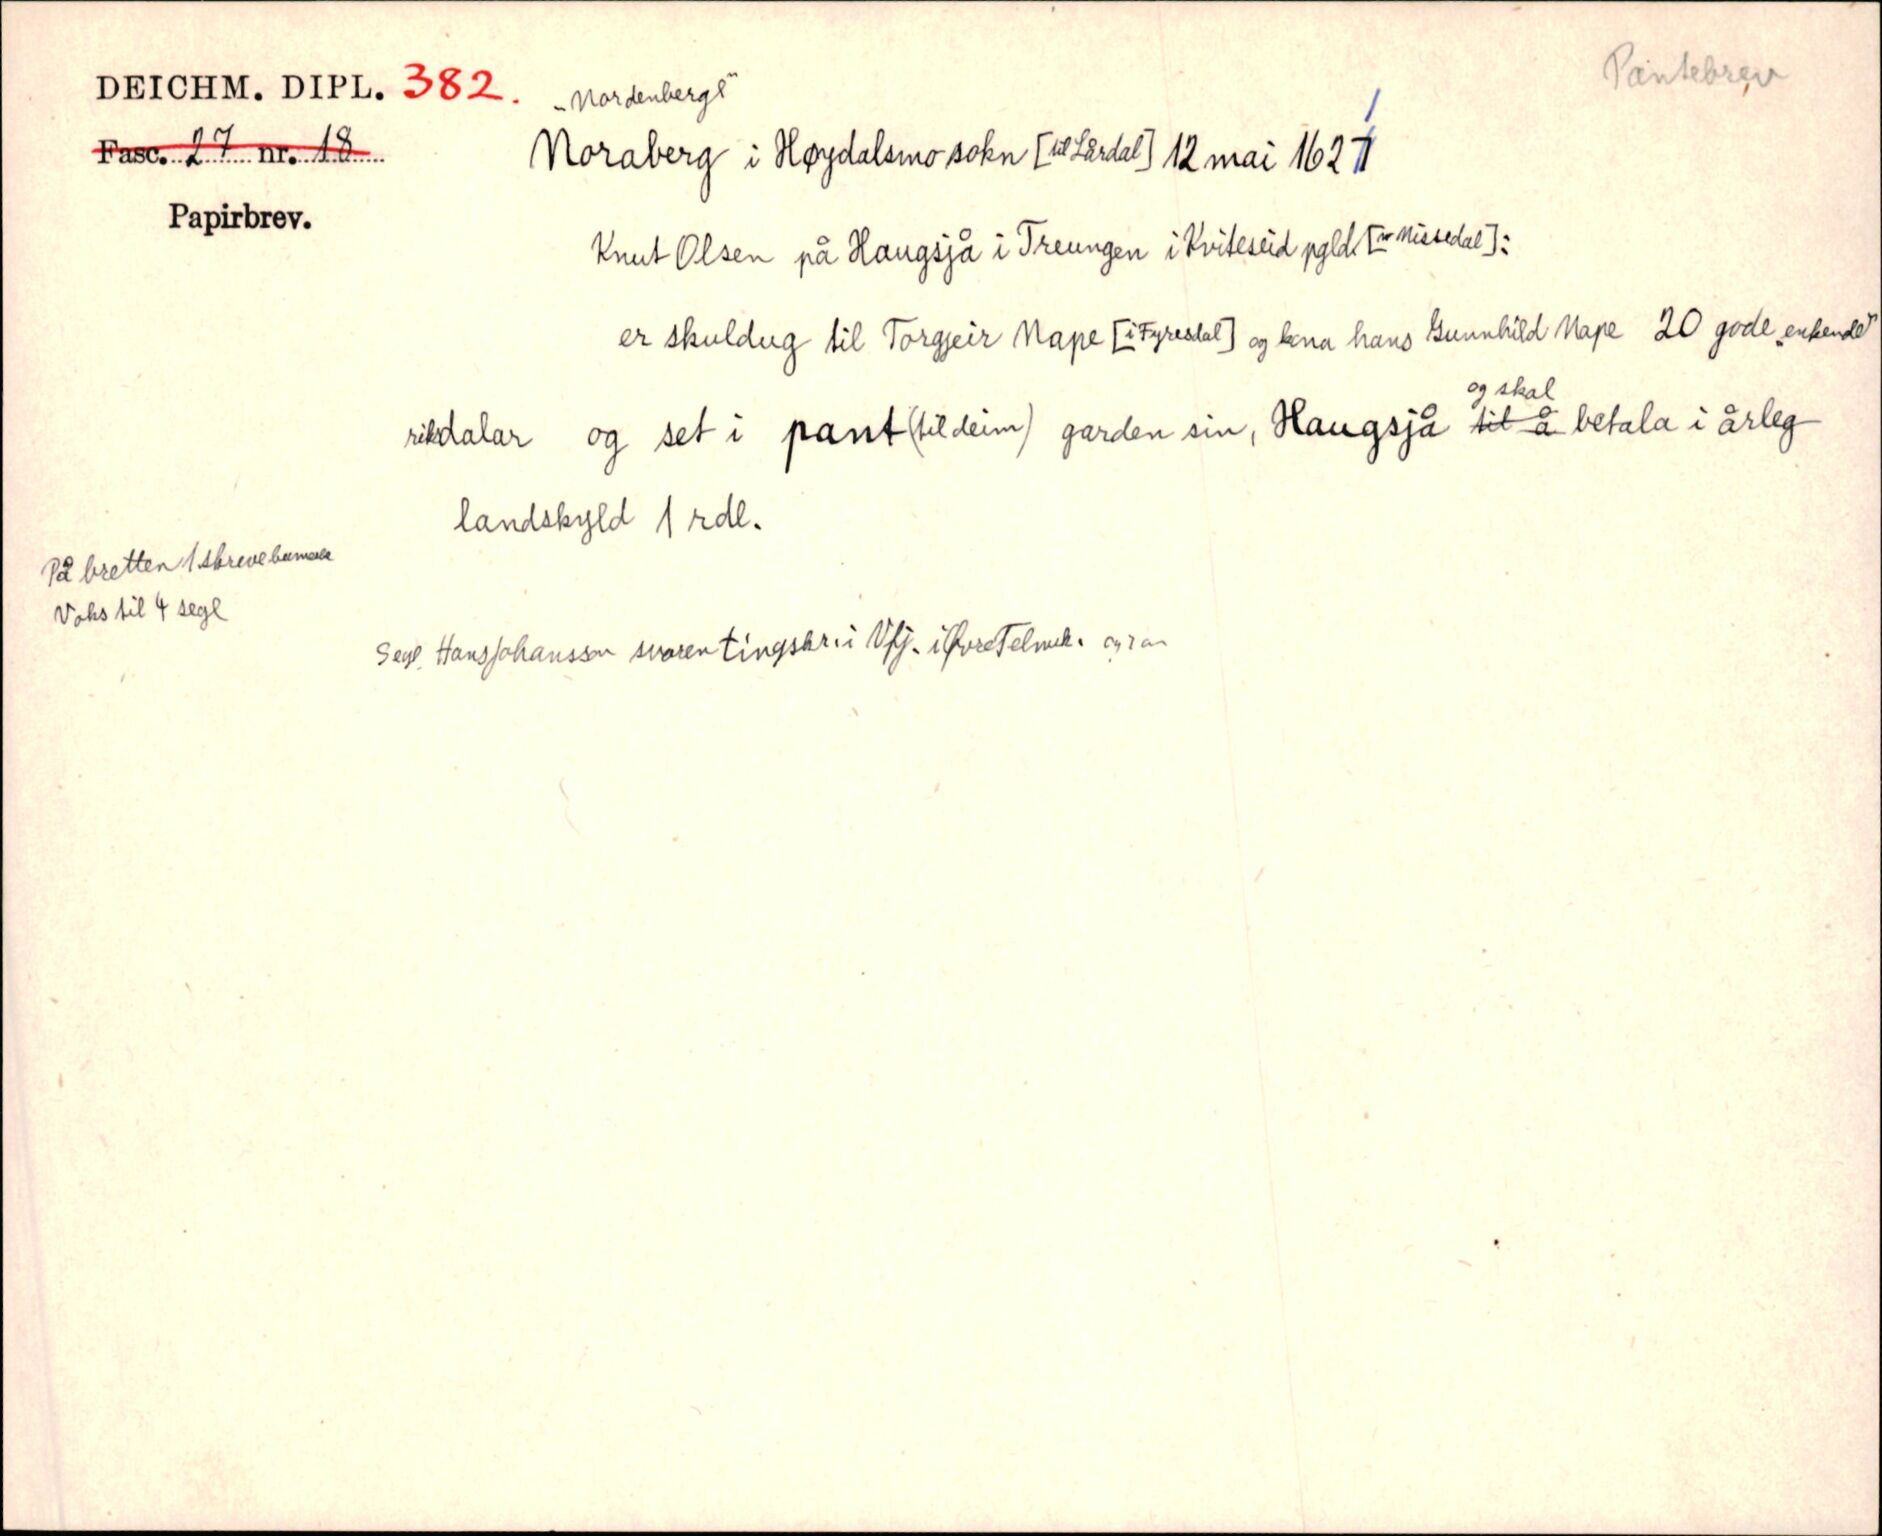 Pantebrev
DEICHM. DIPL. 382.
"Nordenberge"
Fasc. 27 nr. 18
Noraberg i Høydalsmo sokn [til Lårdal] 12 mai 1621
Papirbrev.
Knut Olsen på Haugsjå i Treungen i Kviteseid pgld. [no Nissedal]:
er skuldug til Torgjeir Nape [i Fyresdal] og kona hans Gunnhild Nape 20 gode "enkende"
riksdalar og set i pant (til deim) garden sin, Haugsjå til å betala i årleg
og skal
landskyld 1 rdl.
På bretten 1 skreve bumerke
Voks til 4 segl
Segl. Hans Johansson svoren tingskr. i Vfj. i Øvre Telmrk. og